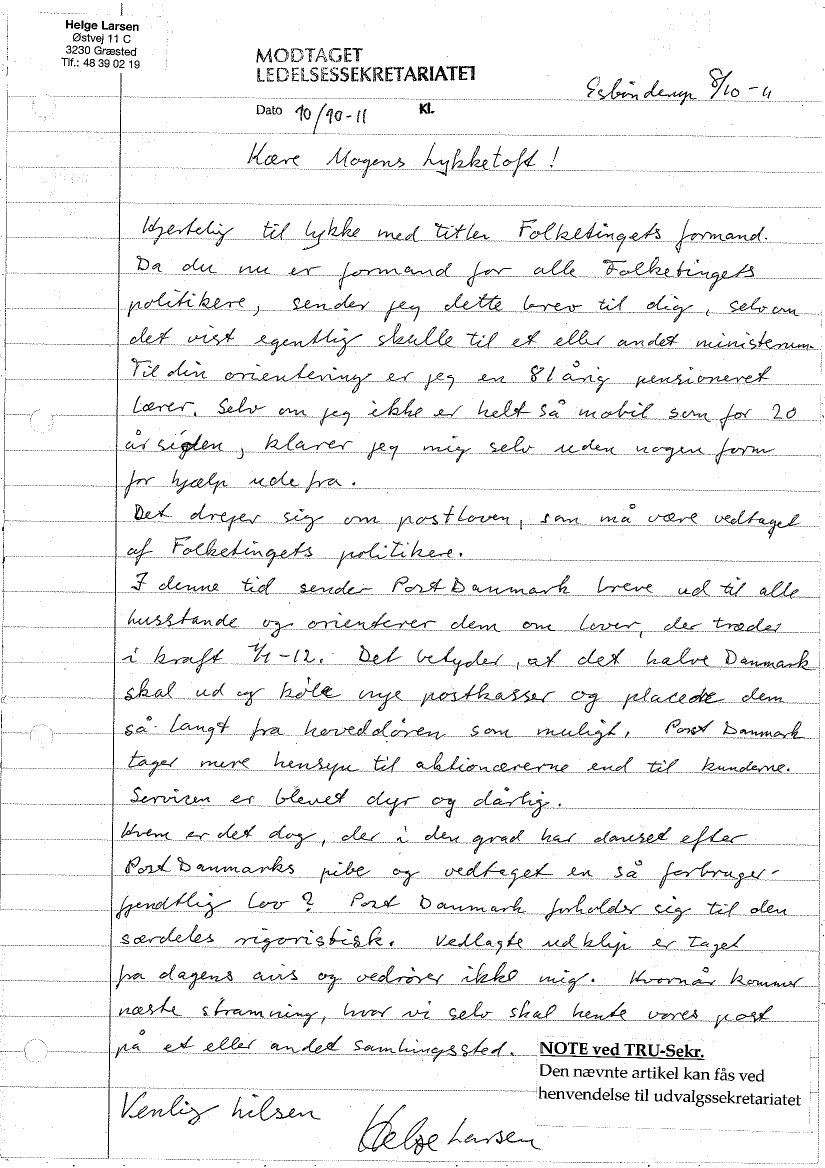 Helge Larsen
Østvej 11 C
3230 Græsted
Tlf.: 48 39 02 19
MODTAGET
LEDELSESSEKRETARIATET
Dato 10/10-11 Kl.
Esbønderup 8/10-11
Kære Mogens Lykketoft!
Hjertelig til lykke med titlen Folketingets formand.
Da du nu er formand for alle Folketingets
politikere, sender jeg dette brev til dig, selv om
det vist egentlig skulle til et eller andet ministerium.
Til din orientering er jeg en 81 årig pensioneret
lærer. Selv om jeg ikke er helt så mobil som for 20
år siden, klarer jeg mig selv uden nogen form
for hjælp udefra.
Det drejer sig om postloven, som må være vedtaget
af Folketingets politikere.
I denne tid sender Post Danmark breve ud til alle
husstande og orienterer dem om loven, der træder
i kraft 1/1-12. Det betyder, at det halve Danmark
skal ud og købe nye postkasser og placere dem
så langt fra hoveddøren som muligt. Post Danmark
tager mere hensyn til aktionærerne end til kunderne.
Servicen er blevet dyr og dårlig.
Hvem er det dog, der i den grad har danset efter
Post Danmarks pibe og vedtaget en så forbruger-
fjendtlig lov? Post Danmark forholder sig til den
særdeles rigoristisk. Vedlagte udklip er taget
fra dagens avis og vedrører ikke mig. Hvornår kommer
næste stramning, hvor vi selv skal hente vores post
på et eller andet samlingssted.
NOTE ved TRU-Sekr.
Den nævnte artikel kan fås ved
henvendelse til udvalgssekretariatet
Venlig hilsen
Helge Larsen